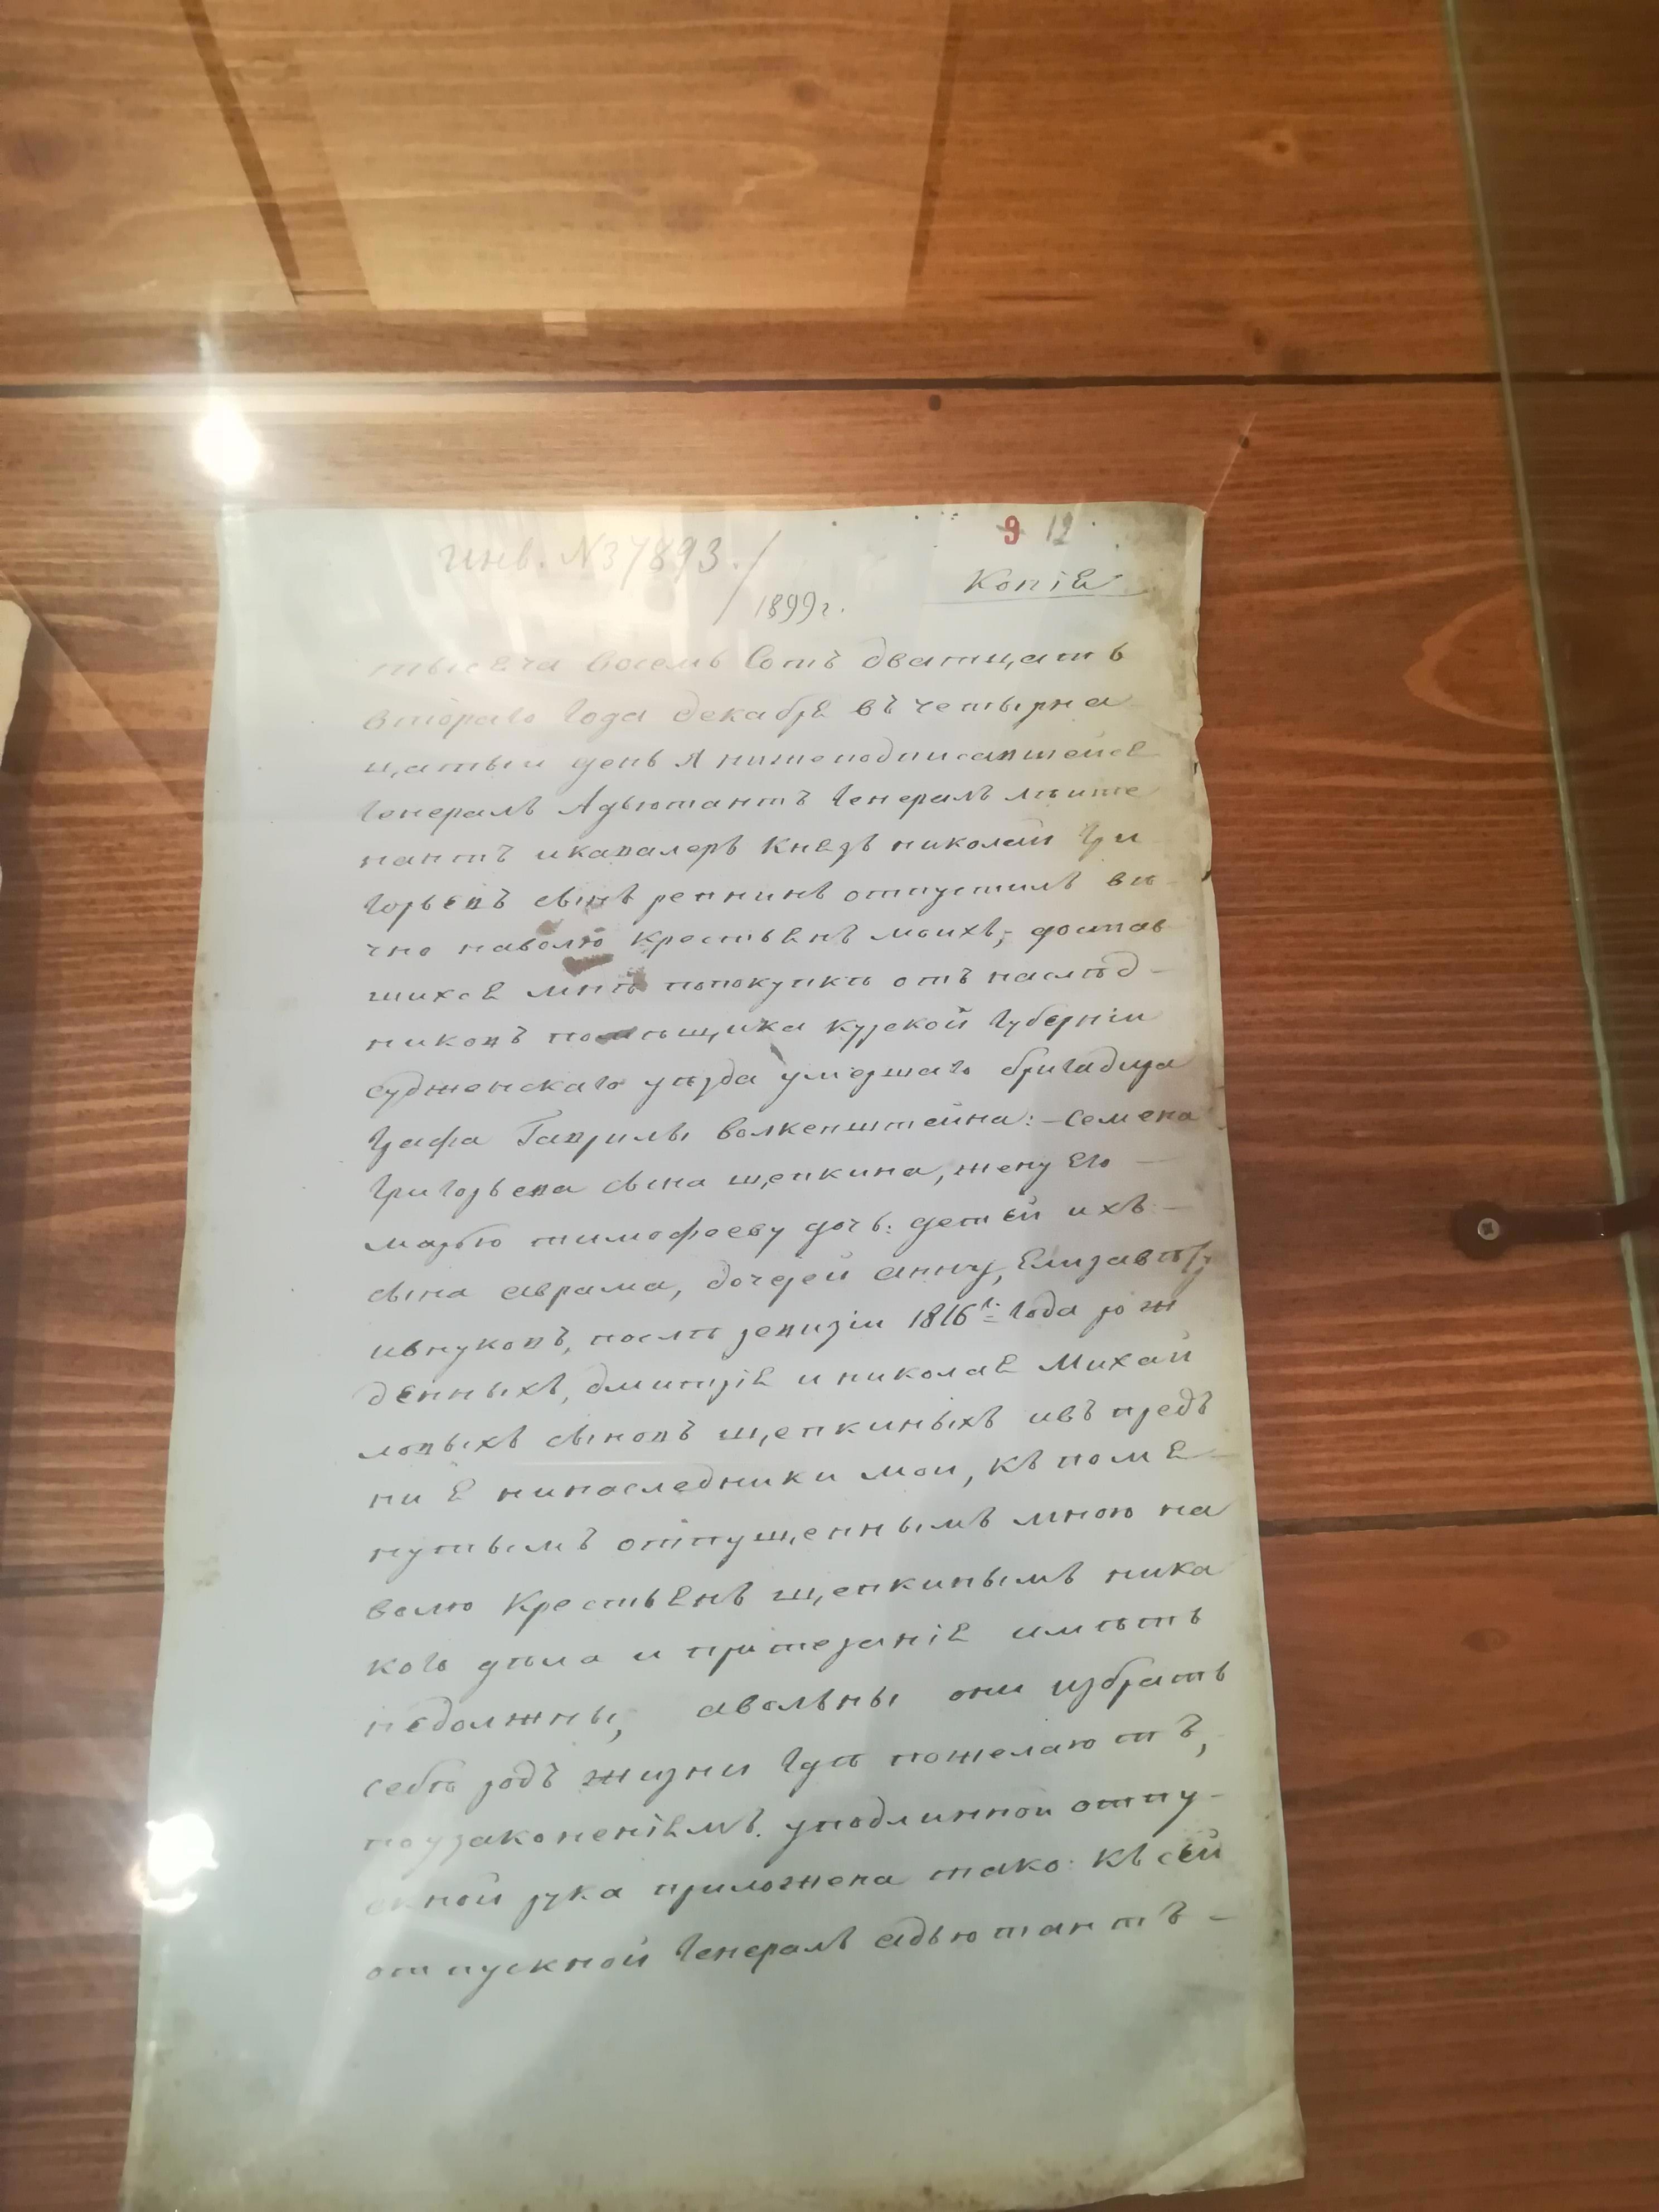 9 12
инв. N 37893./
1899 г.
Копіе
тысеча восемь сотъ дватцать
втораго года декабре въ четырна
цатыи день я нижеподписавшейсе
генералъ Адьютантъ генералъ лѣите
нантъ икавалеръ Кнезь николаи Гри
горьевъ сынъ репнинъ отпустилъ вѣ-
чно наволю крестьенъ моихъ, достав
шихсе мнѣ попокупкѣ отъ наслѣд-
никовъ помѣщика курской губерніи
суджснскаго уѣзда умершаго бригадира
графа Гаврилы волкенштейна:-семена
григорьева сына щепкина, жену его -
марью тимофееву дочь: детей ихъ -
сына аврама, дочерей анну, Елизавѣту
ивнуковъ, послѣ ревизіи 1816г. года рож
денныхъ, дмитріе и николае Михай
ловыхъ сыновъ щепкиныхъ ивъ предь
ни е нинаследники мои, къ поме-
нутымъ отпущеннымъ мною на
волю Крестьенъ щепкинымъ ника
кого дѣла и притезаніе имѣть
недолжны, авольны они избрать
себѣ родъ жизни гдѣ пожелаютъ,
поузаконеніемъ. уподлинной отпу-
скной рука приложена тако: къ сей
отпускной генералъ адьютантъ -